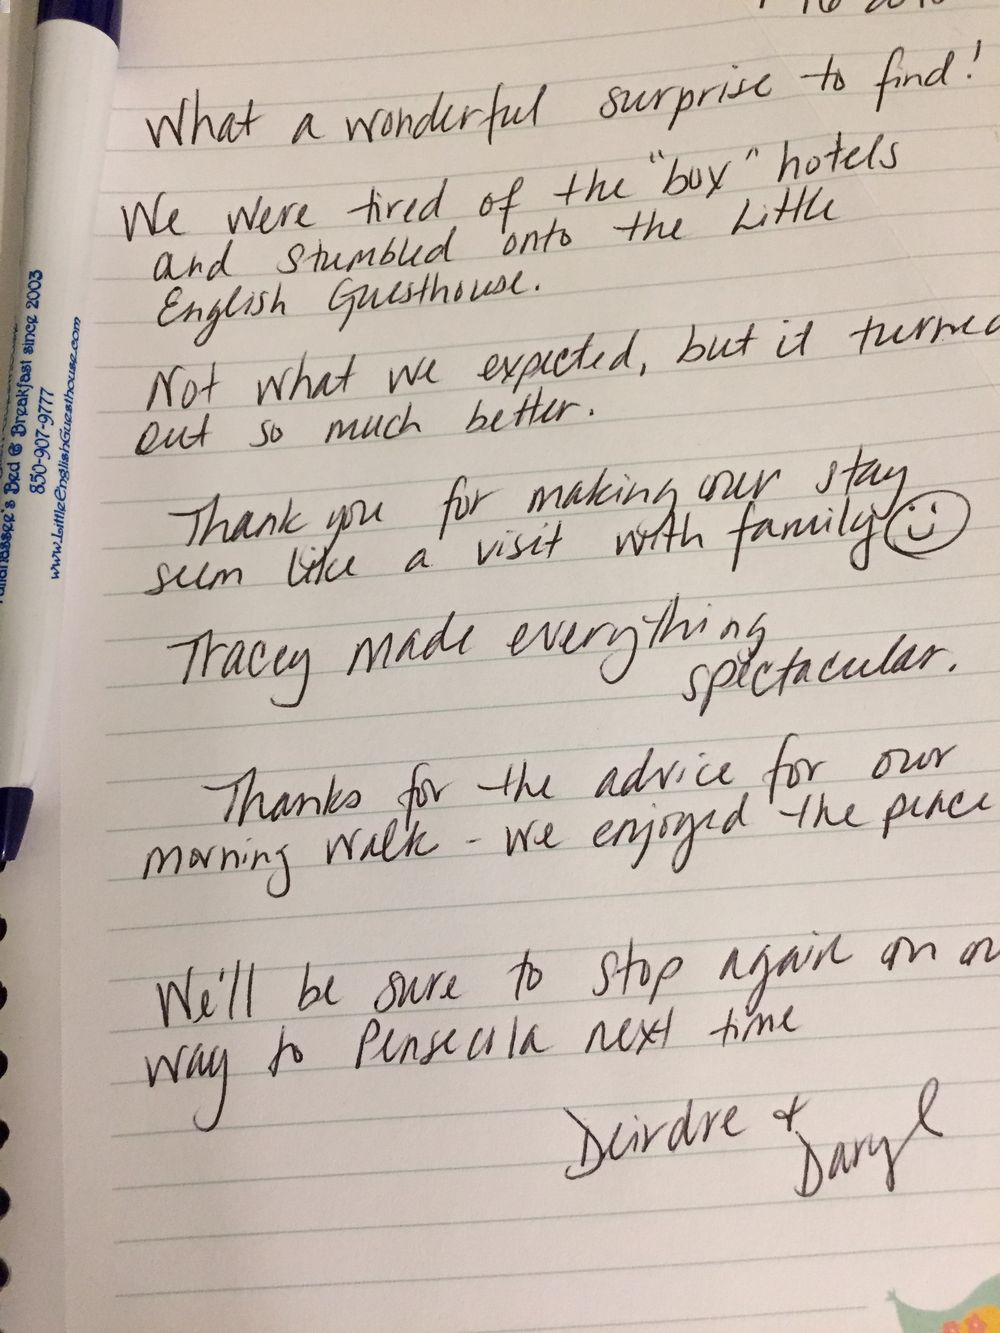 What a wonderful surprise to find!
We were tired of the "box" hotels
and stumbled onto the Little
English Guesthouse.
Not what we expected, but it turned
out so much better.
Thank you for making our stay
seem like a visit with family
Tracey made everything
spectacular.
Thanks for the advice for our
morning walk - we enjoyed the peace
We'll be sure to stop again on ou
way to Pensecola next time
Deirdre &
Daryl
Tallahassee's Bed & Breakfast since 2003
850-907-9777
www.LittleEnglishGuesthouse.com